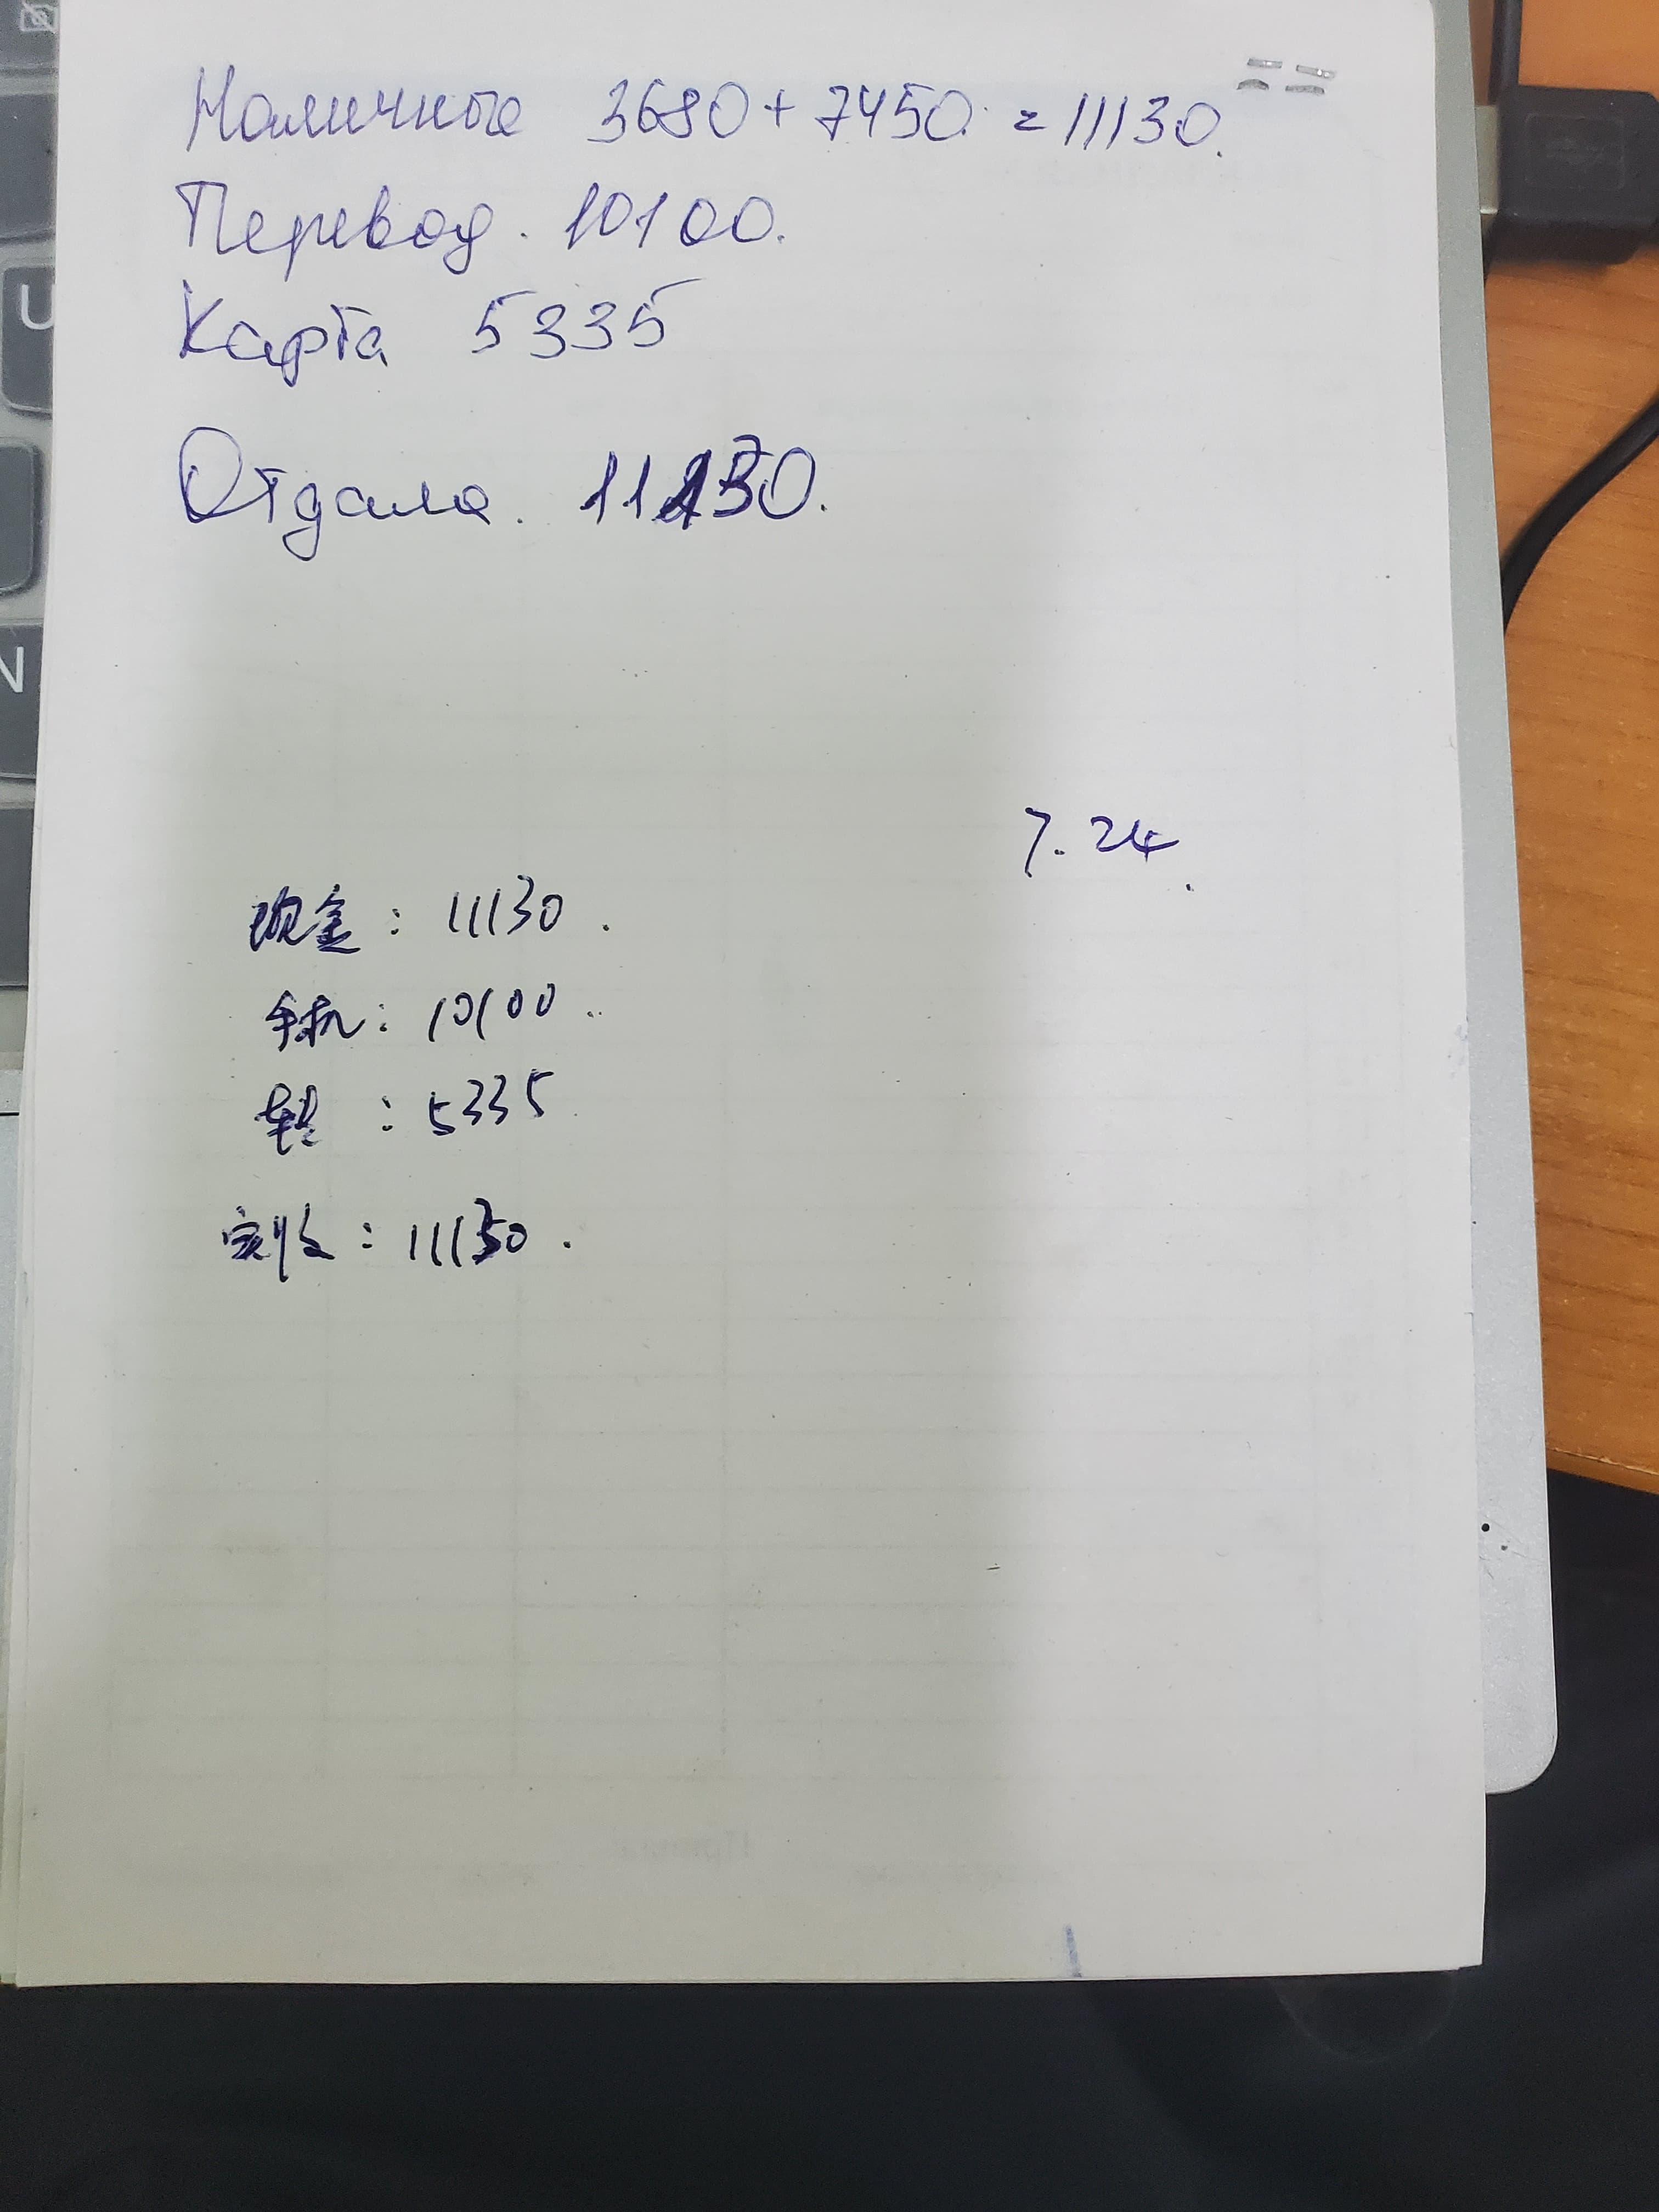 Наличные 3680 + 7450 = 11130.
Перевод. 10100.
Карта 5335
Отдала. 11130.
7.24.
现金: 11130.
手机: 10100.
: 5335
实收: 11130.
U
N